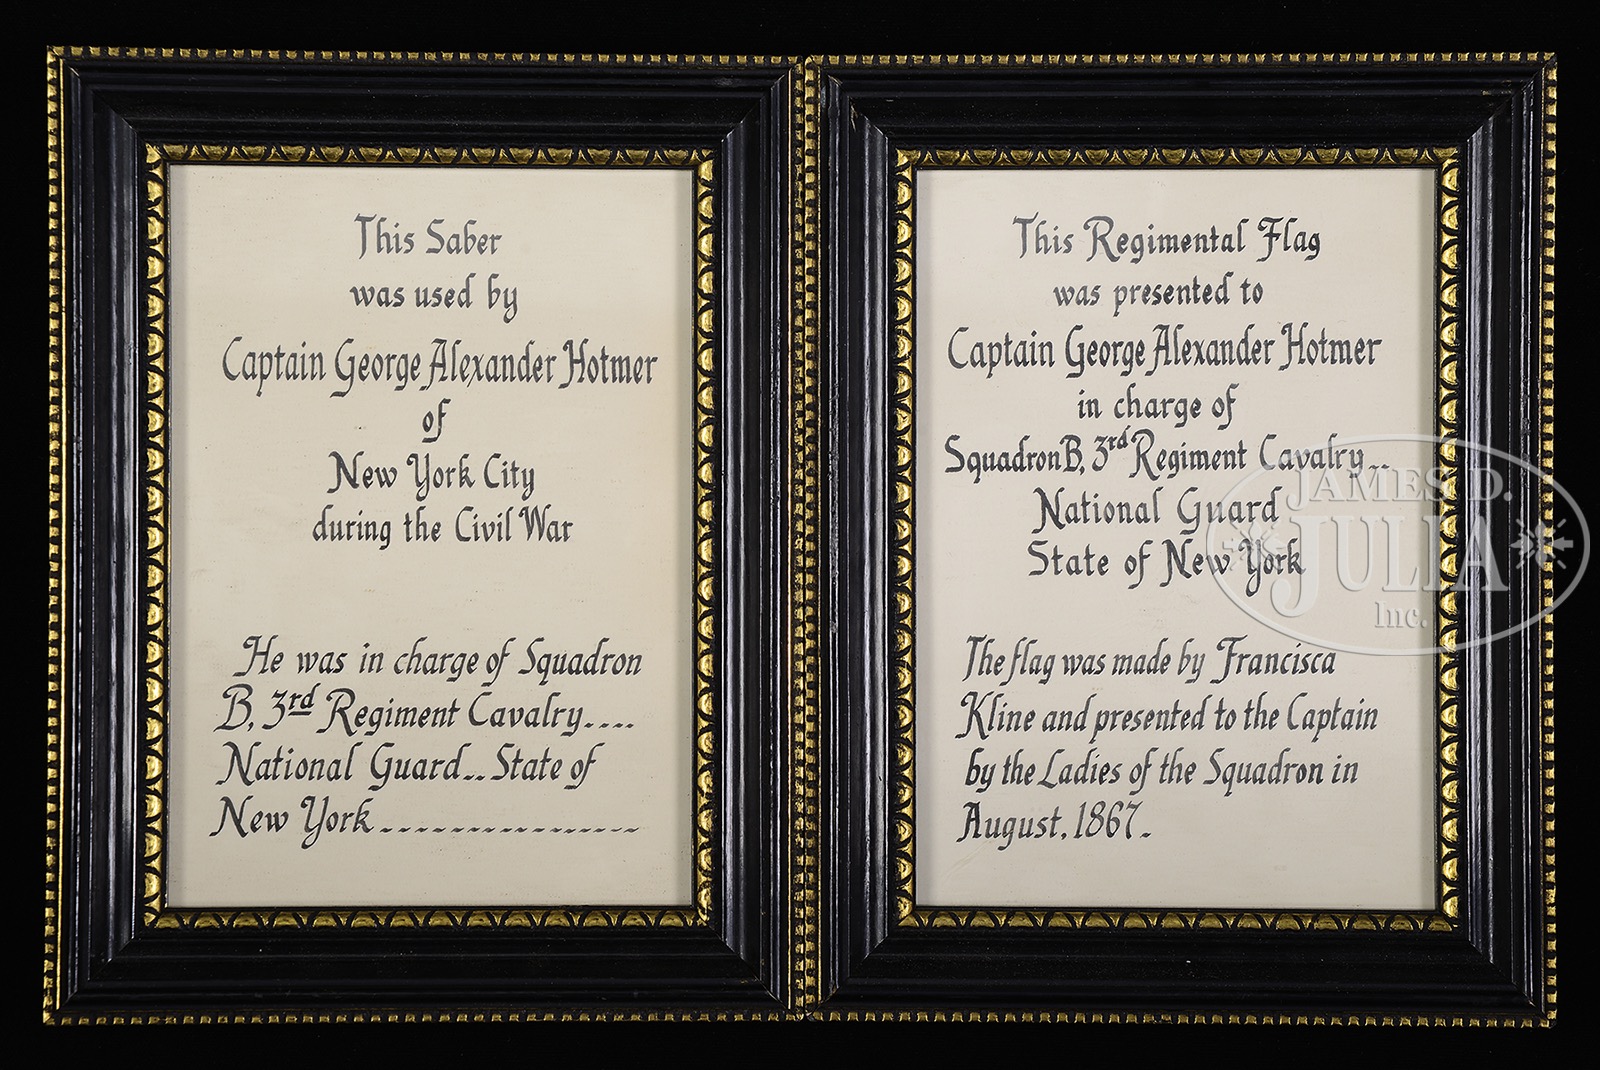 This Saber
was used by
Captain George Alexander Hotmer
of
New York City
during the Civil War
He was in charge of Squadron
B, 3rd Regiment Cavalry....
National Guard.. State of
New York................
This Regimental Flag
was presented to
Captain George Alexander Hotmer
in charge of
Squadron B, 3rd Regiment Cavalry..
National Guard
State of New York
The flag was made by Francisca
Kline and presented to the Captain
by the Ladies of the Squadron in
August, 1867.
JAMES D.
JULIA
Inc.